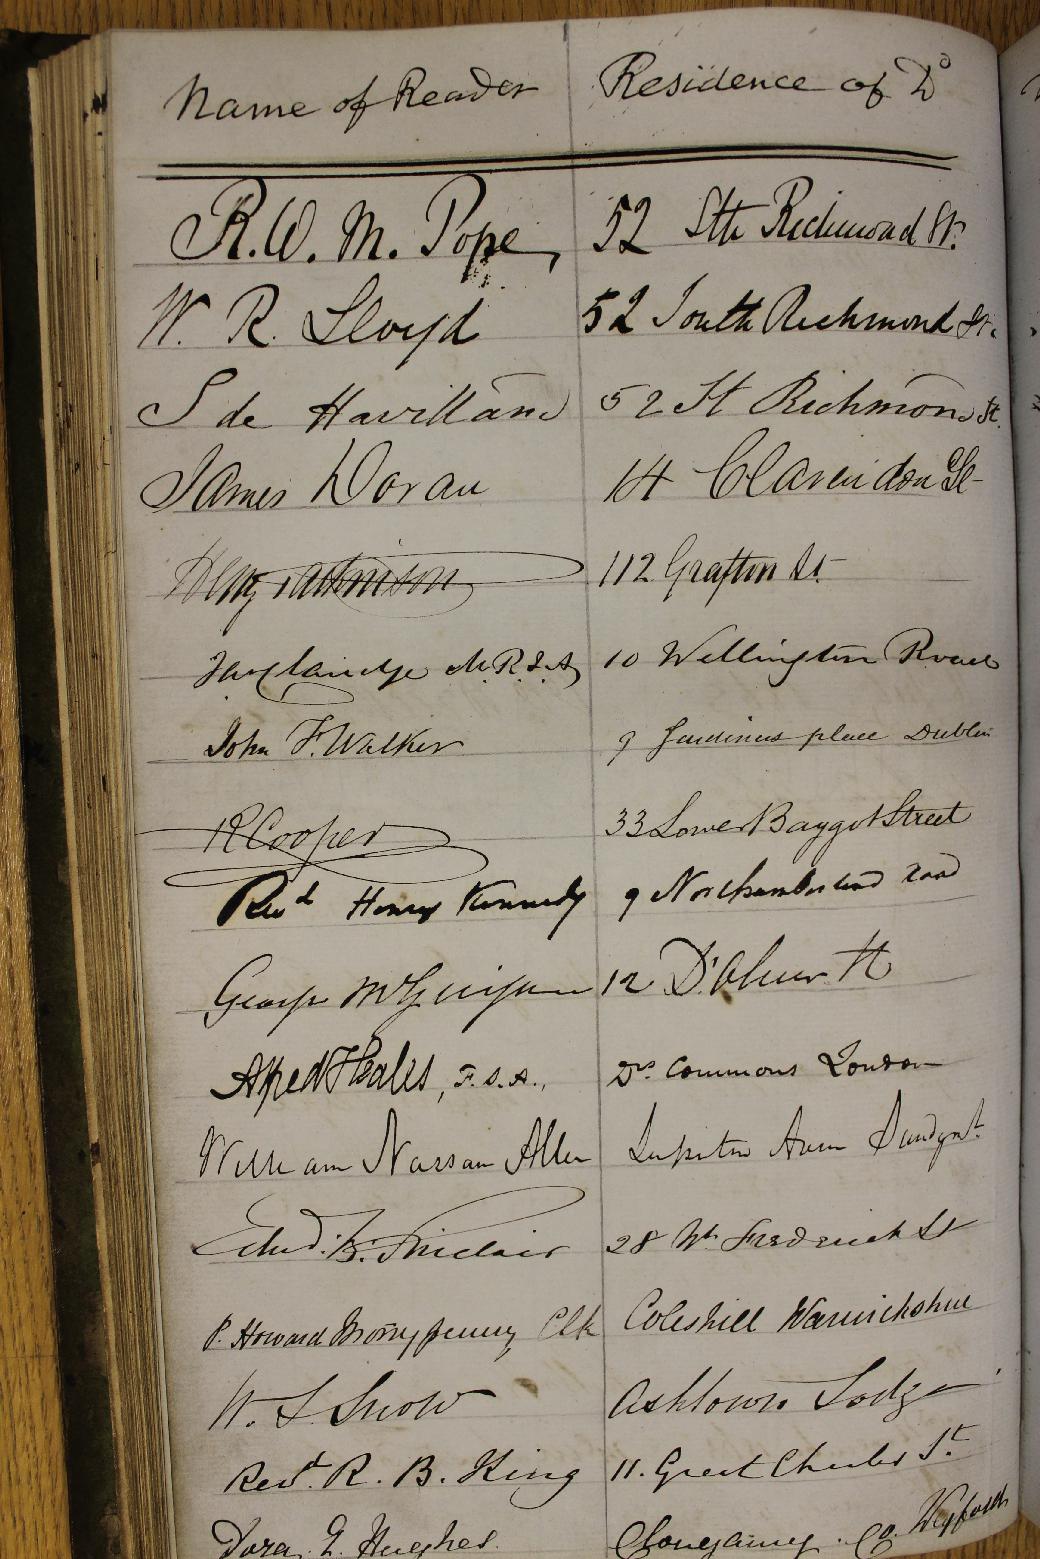 Name of Reader Residence of Do
R. W. M. Pope, 52 Sth Richmond St.
W. R. Lloyd 52 South Richmond St.
S de Havilland 52 St Richmond St.
James Doran 14 Clarendon St
112 Grafton St.
M.R.I.A 10 Wellington Road
John F. Walker 9 Gardiners place Dublin
R Cooper 33 Lower Baggot Street
Revd Henry Kennedy 9 Northumberland road
George 12 D'Olier St
Alfred Heales, F.S.A., Drs Commons London
William Nassau Allen
Edwd. B. Sinclair 28 Nth Frederick St
P. Howard Monypenny Clk Coleshill Warwickshire
W. S. Snow Ashtown Lodge
Revd. R. B. King 11. Great Charles St
Dora Hughes. Co. Wexford